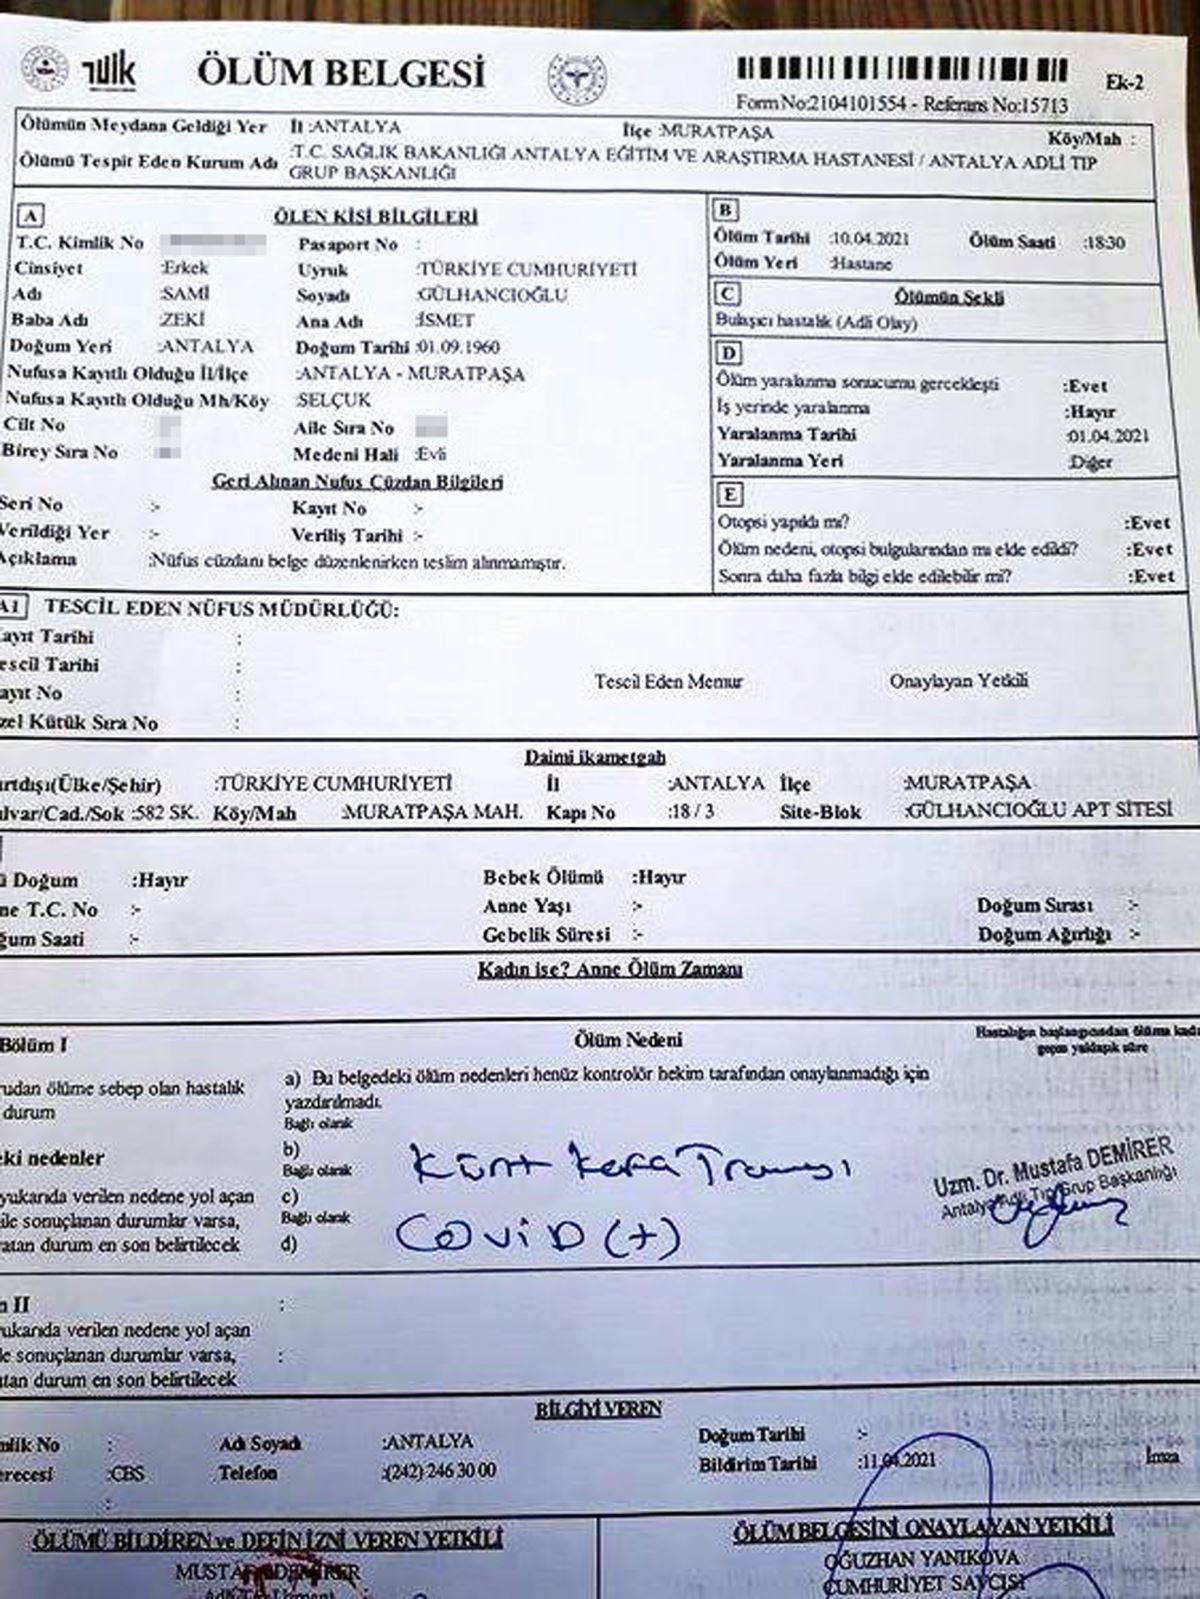 TÜİK ÖLÜM BELGESİ Ek-2
Form No:2104101554 - Referans No:15713
Ölümün Meydana Geldiği Yer İl :ANTALYA İlçe :MURATPAŞA Köy/Mah :
Ölümü Tespit Eden Kurum Adı :T.C. SAĞLIK BAKANLIĞI ANTALYA EĞİTİM VE ARAŞTIRMA HASTANESİ / ANTALYA ADLİ TIP
GRUP BAŞKANLIĞI
A ÖLEN KİŞİ BİLGİLERİ
T.C. Kimlik No Pasaport No :
Cinsiyet :Erkek Uyruk :TÜRKİYE CUMHURİYETİ
Adı :SAMİ Soyadı :GÜLHANCIOĞLU
Baba Adı :ZEKİ Ana Adı :İSMET
Doğum Yeri :ANTALYA Doğum Tarihi :01.09.1960
Nufusa Kayıtlı Olduğu İl/İlçe :ANTALYA - MURATPAŞA
Nufusa Kayıtlı Olduğu Mh/Köy :SELÇUK
Cilt No Aile Sıra No
Birey Sıra No Medeni Hali :Evli
Geri Alınan Nufus Cüzdan Bilgileri
Seri No :- Kayıt No :-
Verildiği Yer :- Veriliş Tarihi :-
Açıklama :Nüfus cüzdanı belge düzenlenirken teslim alınmamıştır.
B
Ölüm Tarihi :10.04.2021 Ölüm Saati :18:30
Ölüm Yeri :Hastane
C Ölümün Şekli
Bulaşıcı hastalık (Adli Olay)
D
Ölüm yaralanma sonucumu gerçekleşti :Evet
İş yerinde yaralanma :Hayır
Yaralanma Tarihi :01.04.2021
Yaralanma Yeri :Diğer
E
Otopsi yapıldı mı? :Evet
Ölüm nedeni, otopsi bulgularından mı elde edildi? :Evet
Sonra daha fazla bilgi elde edilebilir mi? :Evet
A1 TESCİL EDEN NÜFUS MÜDÜRLÜĞÜ:
ayıt Tarihi :
escil Tarihi :
ayıt No :
zel Kütük Sıra No :
Tescil Eden Memur Onaylayan Yetkili
Daimi ikametgah
urtdışı(Ülke/Şehir) :TÜRKİYE CUMHURİYETİ İl :ANTALYA İlçe :MURATPAŞA
lvar/Cad./Sok :582 SK. Köy/Mah :MURATPAŞA MAH. Kapı No :18 / 3 Site-Blok :GÜLHANCIOĞLU APT SİTESİ
ü Doğum :Hayır Bebek Ölümü :Hayır
ne T.C. No :- Anne Yaşı :- Doğum Sırası :-
ğum Saati :- Gebelik Süresi :- Doğum Ağırlığı :-
Kadın ise? Anne Ölüm Zamanı
Bölüm I Ölüm Nedeni Hastalığın başlangıcından ölüme kada
geçen yaklaşık süre
rudan ölüme sebep olan hastalık
durum
a) Bu belgedeki ölüm nedenleri henüz kontrolör hekim tarafından onaylanmadığı için
yazdırılmadı.
Bağlı olarak
eki nedenler b)
Bağlı olarak
Künt kafa Travması
yukarıda verilen nedene yol açan c)
ile sonuçlanan durumlar varsa, Bağlı olarak
atan durum en son belirtilecek d)
COViD (+)
Uzm. Dr. Mustafa DEMİRER
Antalya Adli Tıp Grup Başkanlığı
n II :
yukarıda verilen nedene yol açan
le sonuçlanan durumlar varsa, :
atan durum en son belirtilecek
BİLGİYİ VEREN
mlik No : Adı Soyadı :ANTALYA Doğum Tarihi :-
erecesi :CBS Telefon :(242) 246 30 00 Bildirim Tarihi :11.04.2021 İmza
:
ÖLÜMÜ BİLDİREN ve DEFİN İZNİ VEREN YETKİLİ
MUSTAFA DEMİRER
Adli Tıp Uzmanı
ÖLÜM BELGESİNİ ONAYLAYAN YETKİLİ
OĞUZHAN YANIKOVA
CUMHURİYET SAVCISI